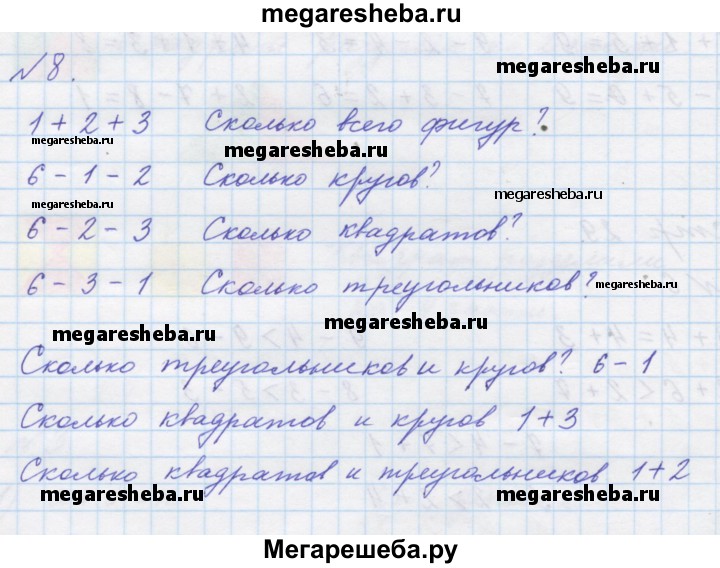 megaresheba.ru
№8.
megaresheba.ru
1 + 2 + 3 Сколько всего фигур?
megaresheba.ru
megaresheba.ru
6 - 1 - 2 Сколько кругов?
megaresheba.ru
megaresheba.ru
6 - 2 - 3 Сколько квадратов?
6 - 3 - 1 Сколько треугольников?
megaresheba.ru
megaresheba.ru
megaresheba.ru
Сколько треугольников и кругов? 6 - 1
Сколько квадратов и кругов 1 + 3
Сколько квадратов и треугольников 1 + 2
megaresheba.ru
megaresheba.ru
Мегарешеба.ру